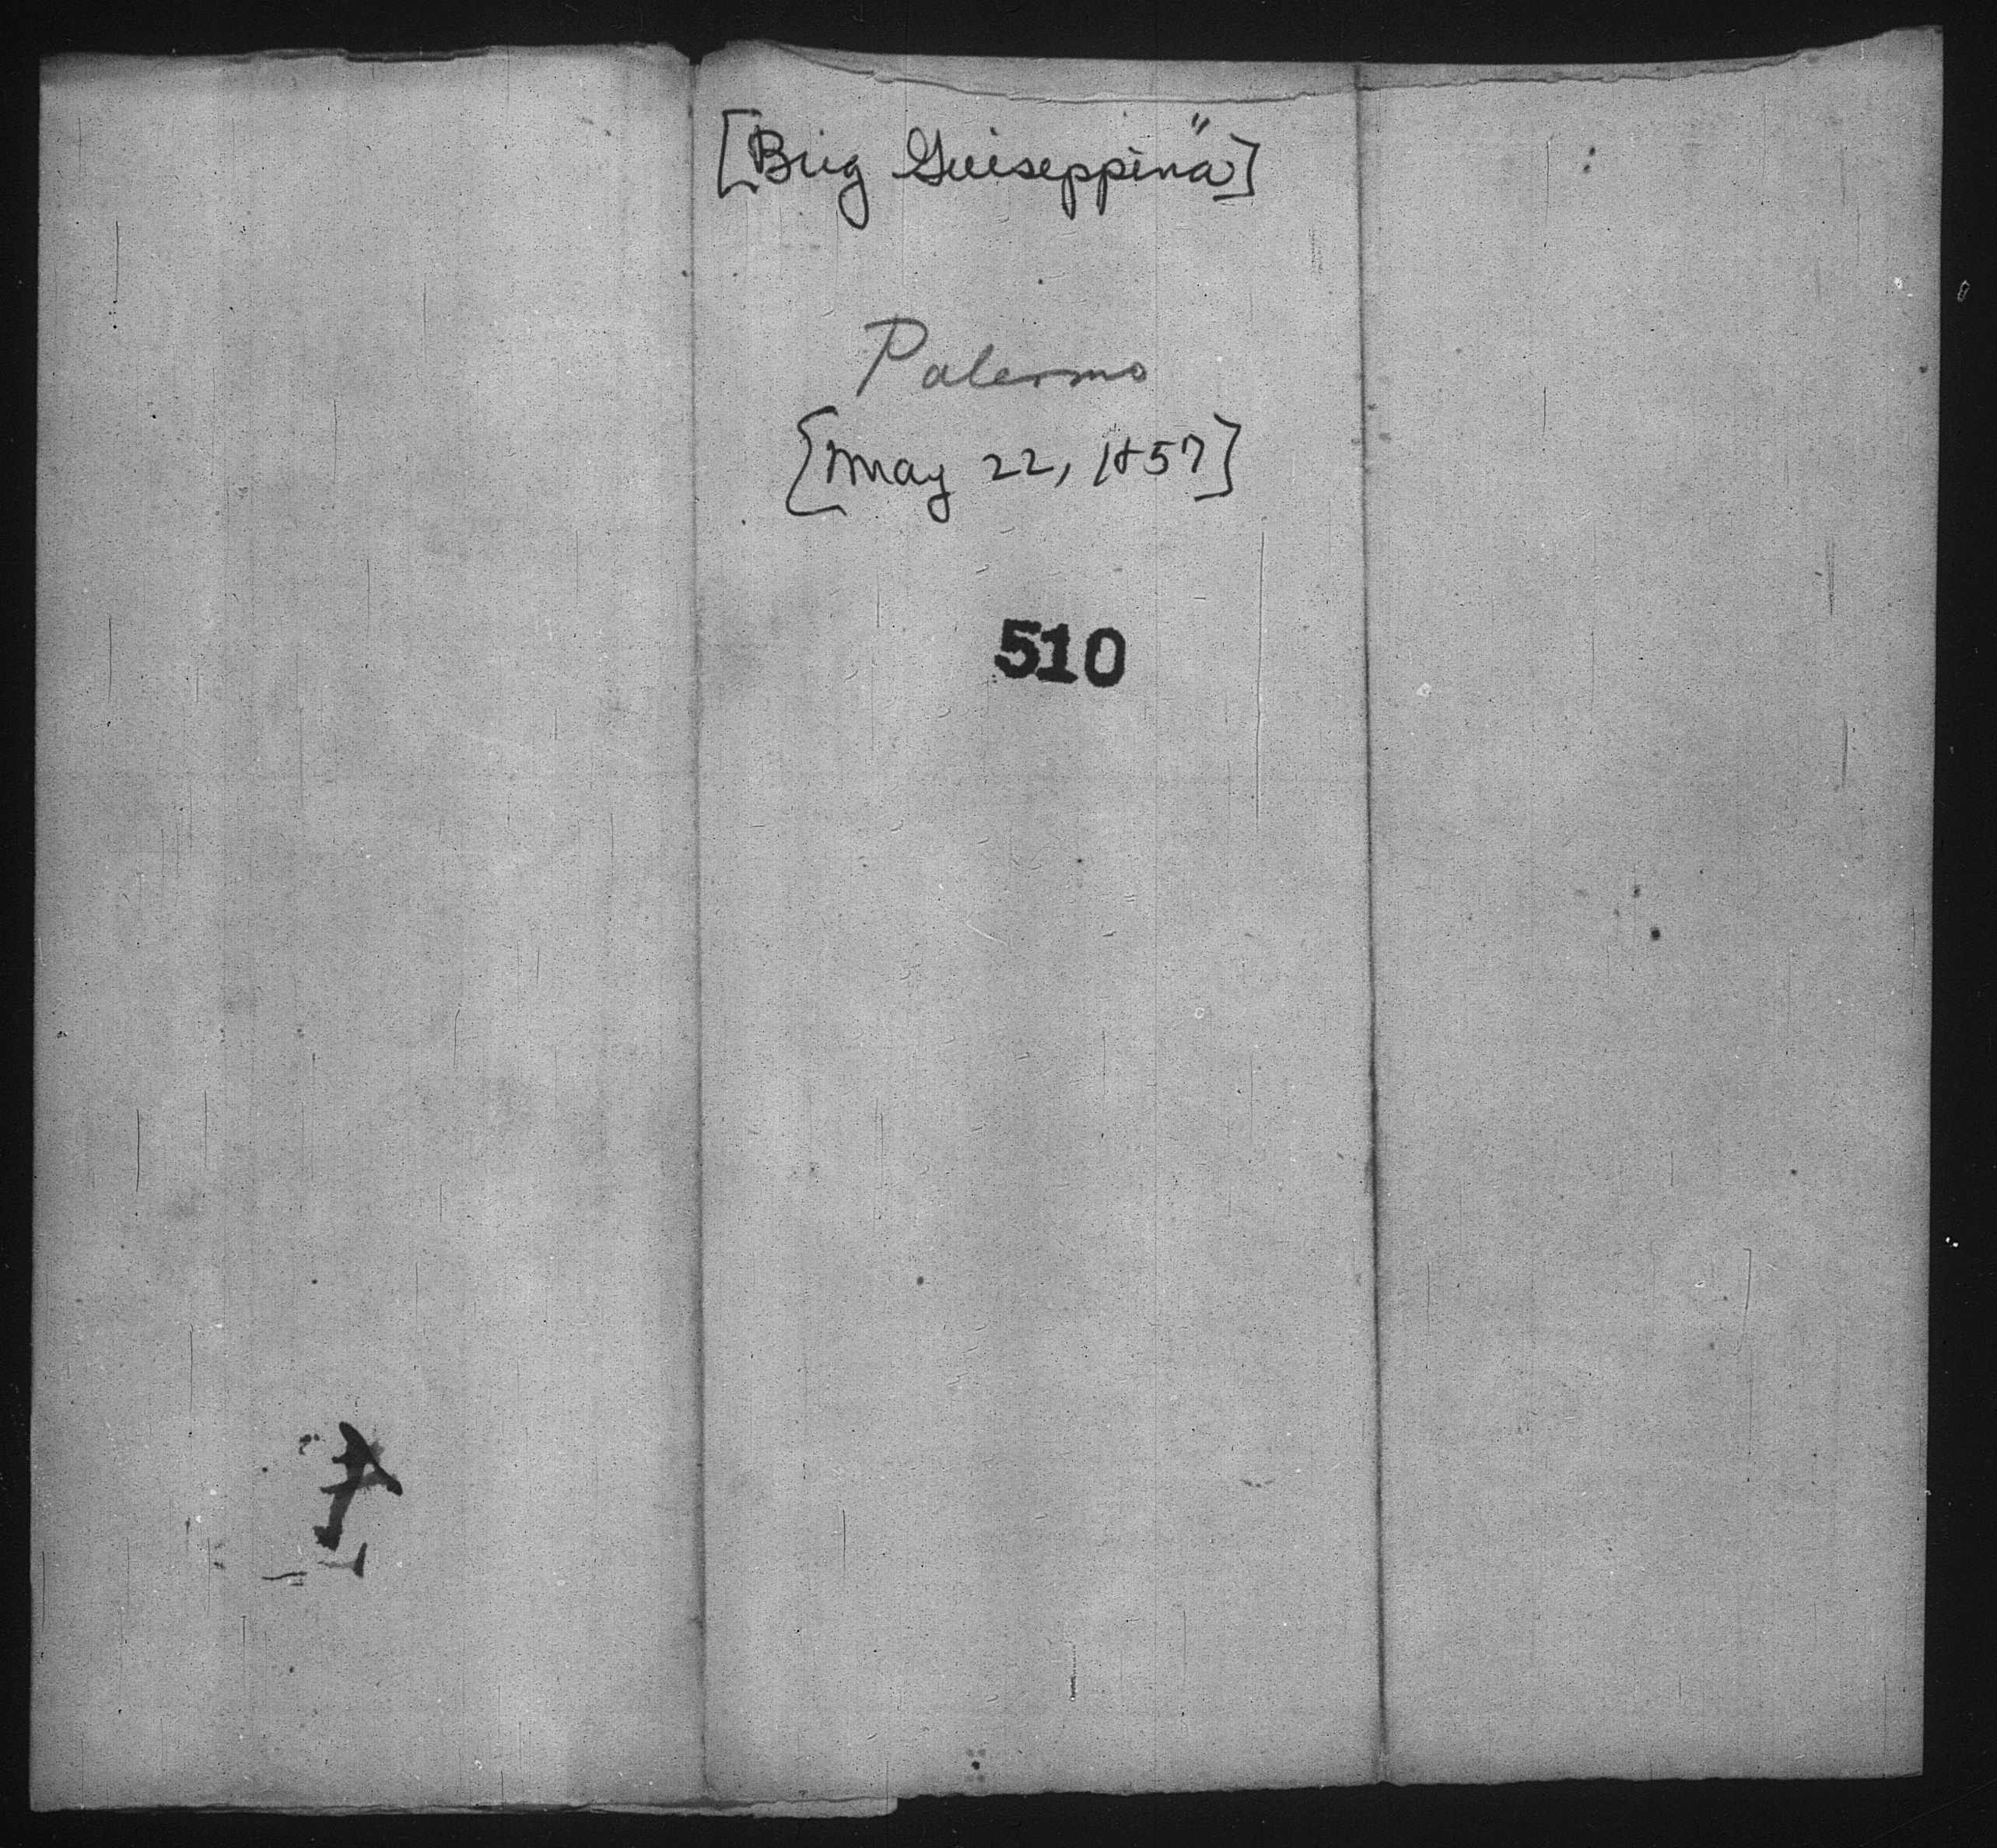 [Brig Guiseppina"]
Palermo
[May 22, 1857]
510